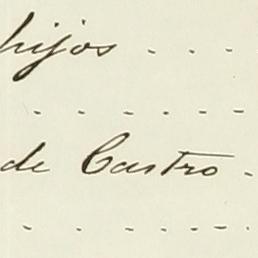 hijos . . . .
. . . . . .
de Castro .
. . . . . .